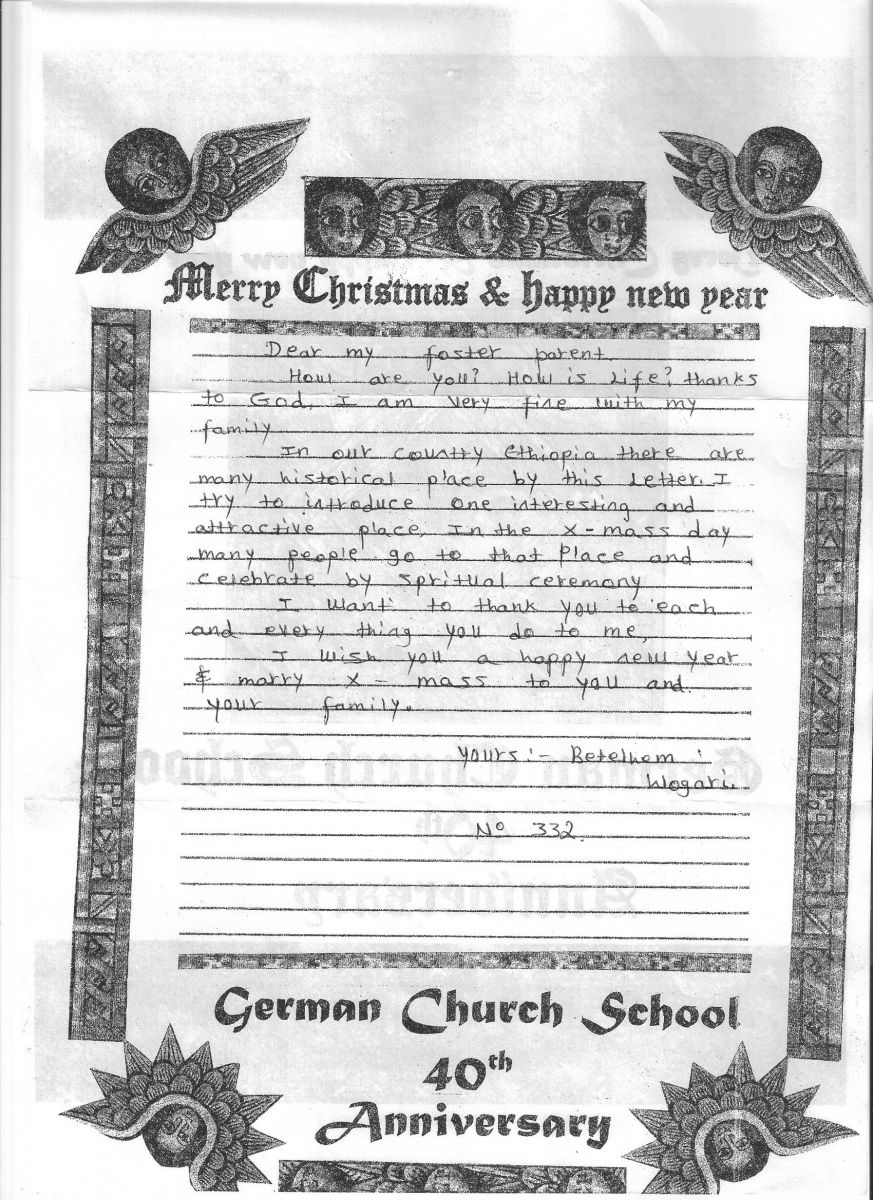 Merry Christmas & happy new year
Dear my foster parent
How are you? How is Life? thanks
to God, I am very fine with my
family
In our country Ethiopia there are
many historical place by this Letter. I
try to introduce one interesting and
attractive place. In the x-mass day
many people go to that Place and
celebrate by spritual ceremony
I want to thank you to each
and every thing you do to me,
I wish you a happy new year
& marry x-mass to you and
your family.
yours:- Betelhem
Wogari
No 332
German Church School
40th
Anniversary